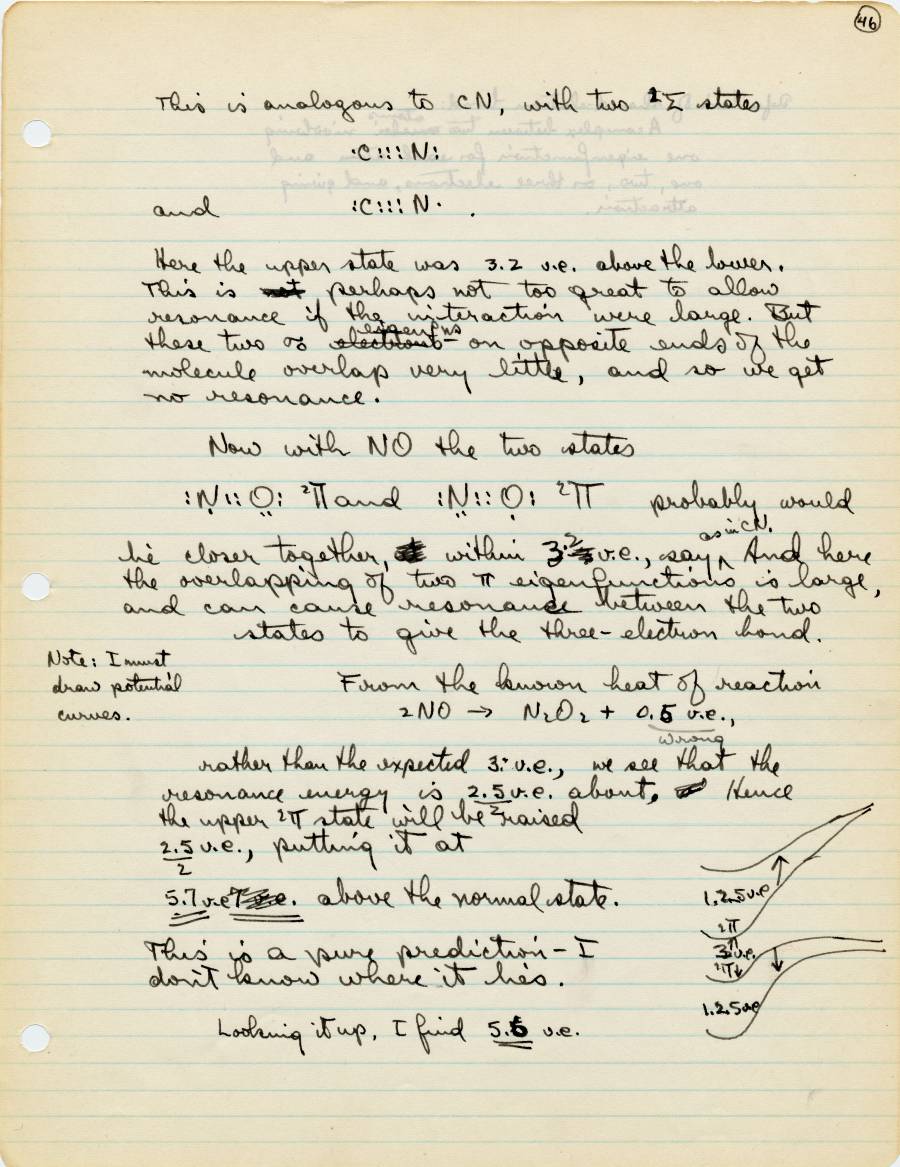 46
This is analogous to CN, with two ²Σ states
·C:::N:
and :C:::N· .
Here the upper state was 3.2 v.e. above the lower.
This is perhaps not too great to allow
resonance if the interaction were large. But
these two σ eigenfns on opposite ends of the
molecule overlap very little, and so we get
no resonance.
Now with NO the two states
:N:::O: ²Π and :N:::O: ²Π probably would
as in CN.
lie closer together, within 3.2 v.e., say. And here
the overlapping of two π eigenfunctions is large,
and can cause resonance between the two
states to give the three-electron bond.
Note: I must
draw potential
curves.
From the known heat of reaction
2NO → N₂O₂ + 0.5 v.e.,
Wrong
rather than the expected 3. v.e., we see that the
resonance energy is 2.5/2 v.e. about. Hence
the upper ²Π state will be raised
2.5/2 v.e., putting it at
5.7 v.e. above the normal state.
This is a pure prediction - I
don't know where it lies.
Looking it up, I find 5.6 v.e.
1.25 v.e
²Π
3 v.e.
²Π
1.25 ve